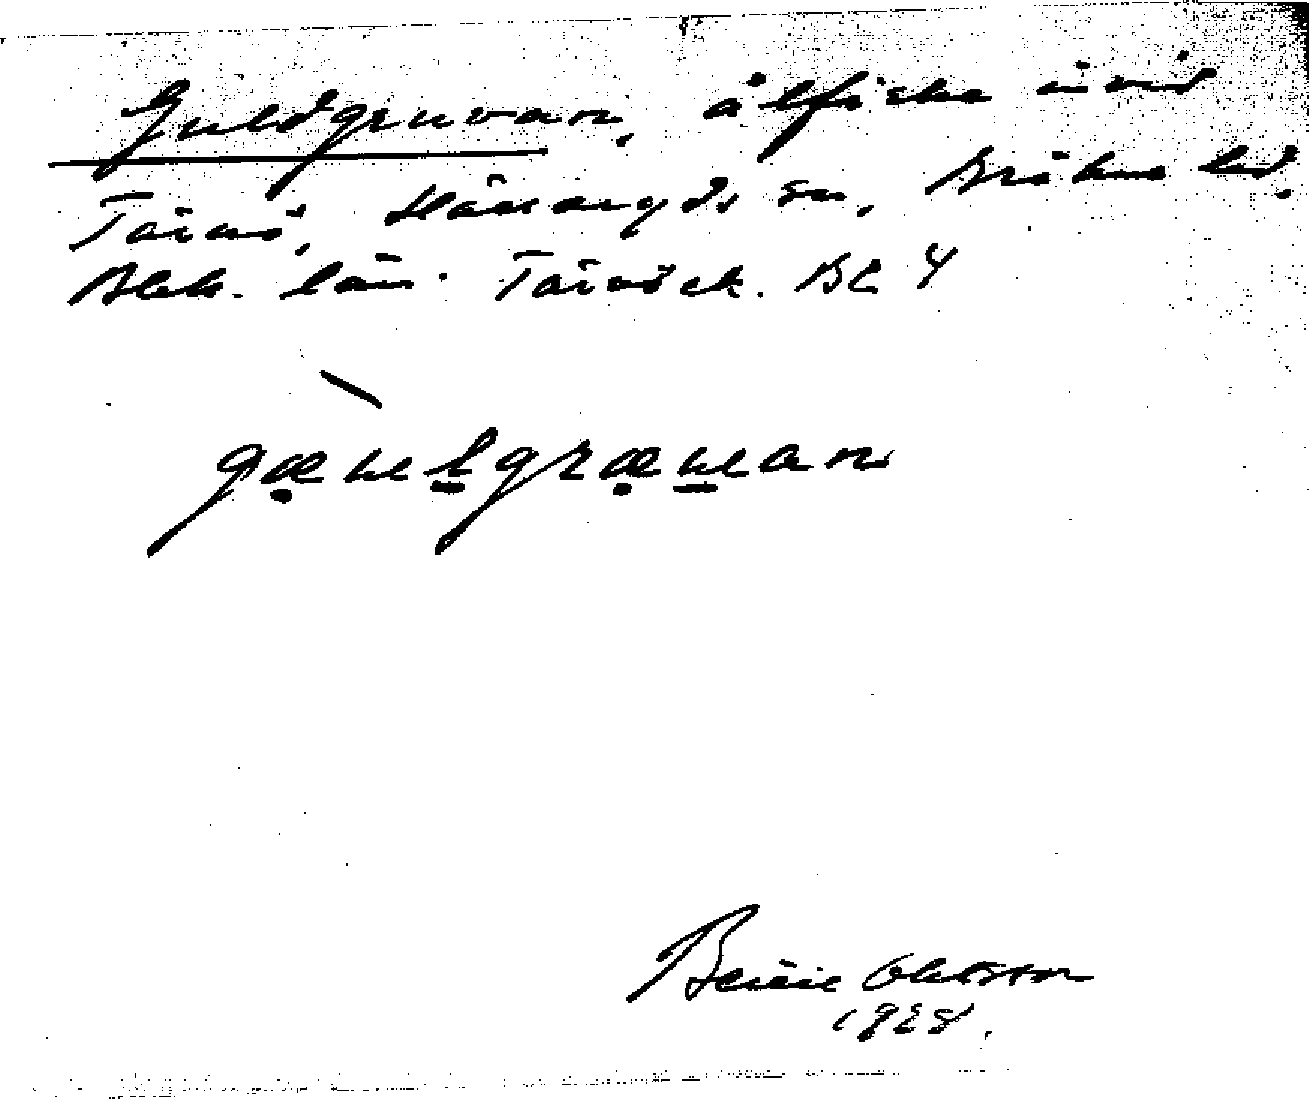 Guldgruvan, ålfiske invid
Tärnö, Hällaryds sn, Bräkne hd.
Blek. län. Tärnö ek. Bl. 4
gæwlgræwan
Bertil Ohlsson
1928.